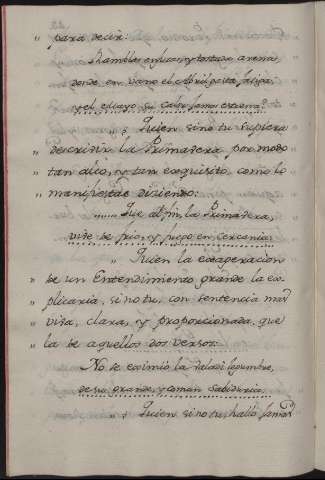 " para decir:
Ramblas enjutas, y tostada arena,
donde en vano el Abril gasta fatiga
y el Mayo su calor jamas estrena?
" ¿Quien sino tu supiera
" describir la Primadera por modo
" tan alto, y tan exquisito, como lo
" manifiestas diziendo:
...... Que al fin, la Primadera,
vive de frio, y fuego en cercania.
" Quien la exageracion
" de un Entendimiento grande la ex-
" plicaria, si no tu, con sentencia mas
" viva, clara, y proporcionada, que
" la de aquellos dos versos:
No te eximió la
de su grande, y aman Sabiduria.
" ¿Quien si no tu, halló jamas